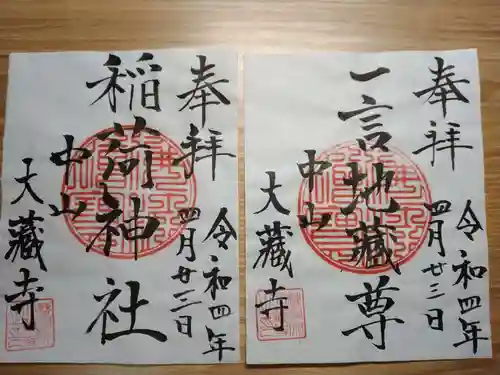 奉拝
令和四年
四月廿三日
稲荷神社
中山
大藏寺
奉拝
令和四年
四月廿三日
一言地藏尊
中山
大藏寺